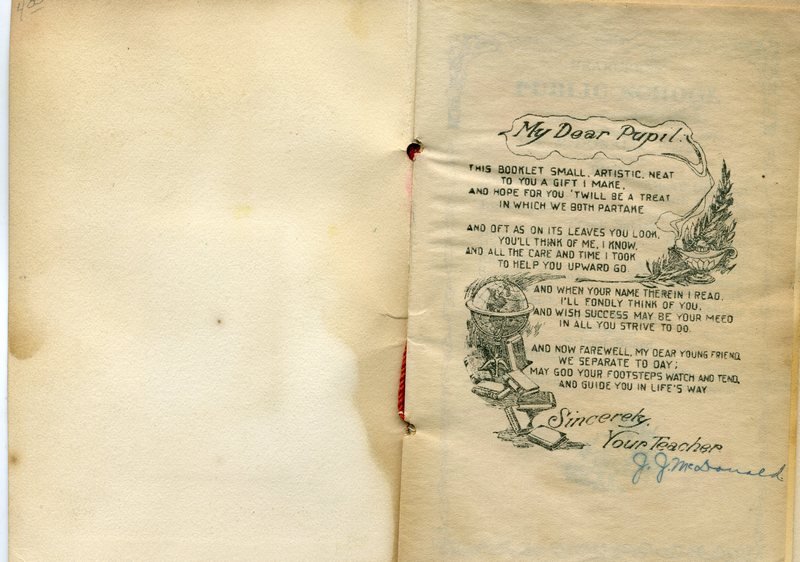 My Dear Pupil:
THIS BOOKLET SMALL, ARTISTIC, NEAT
TO YOU A GIFT I MAKE,
AND HOPE FOR YOU 'TWILL BE A TREAT
IN WHICH WE BOTH PARTAKE
AND OFT AS ON ITS LEAVES YOU LOOK,
YOU'LL THINK OF ME, I KNOW.
AND ALL THE CARE AND TIME I TOOK
TO HELP YOU UPWARD GO.
AND WHEN YOUR NAME THEREIN I READ,
I'LL FONDLY THINK OF YOU,
AND WISH SUCCESS MAY BE YOUR MEED
IN ALL YOU STRIVE TO DO.
AND NOW FAREWELL, MY DEAR YOUNG FRIEND,
WE SEPARATE TO DAY;
MAY GOD YOUR FOOTSTEPS WATCH AND TEND,
AND GUIDE YOU IN LIFE'S WAY
Sincerely,
Your Teacher
J. J. McDonald.